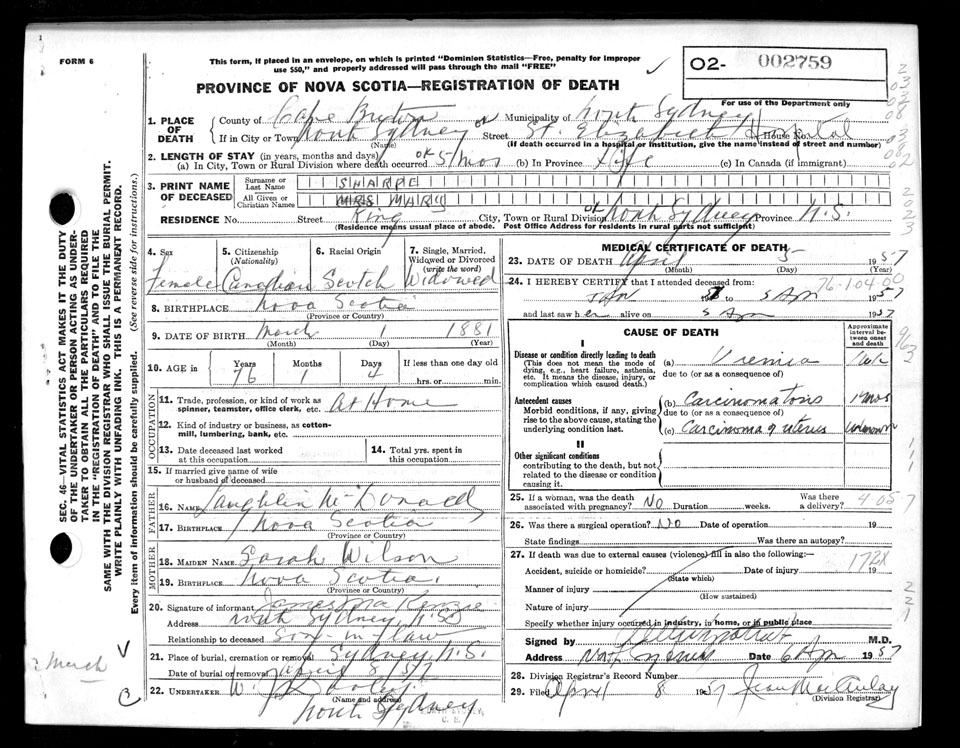 FORM 6
This form, if placed in an envelope, on which is printed "Dominion Statistics—Free, penalty for improper
use $50," and properly addressed will pass through the mail "FREE"
O2- 002759
PROVINCE OF NOVA SCOTIA—REGISTRATION OF DEATH
For use of the Department only
1. PLACE OF DEATH
County of Cape Breton or Municipality of North Sydney
If in City or Town North Sydney Street St. Elizabeth Hospital House No.
(Name) (If death occurred in a hospital or institution, give the name instead of street and number)
2. LENGTH OF STAY (in years, months and days)
(a) In City, Town or Rural Division where death occurred 5 mos (b) In Province Life (c) In Canada (if immigrant)
3. PRINT NAME OF DECEASED
Surname or Last Name SHARPE
All Given or Christian Names MRS MARY
RESIDENCE No. Street King City, Town or Rural Division North Sydney Province N.S.
(Residence means usual place of abode. Post Office Address for residents in rural parts not sufficient)
4. Sex Female
5. Citizenship (Nationality) Canadian
6. Racial Origin Scotch
7. Single, Married, Widowed or Divorced (write the word) Widowed
8. BIRTHPLACE Nova Scotia
(Province or Country)
9. DATE OF BIRTH March 1 1881
(Month) (Day) (Year)
10. AGE in Years 76 Months 1 Days 4 If less than one day old hrs. or min.
OCCUPATION
11. Trade, profession, or kind of work as spinner, teamster, office clerk, etc. At Home
12. Kind of industry or business, as cotton-mill, lumbering, bank, etc.
13. Date deceased last worked at this occupation
14. Total yrs. spent in this occupation
15. If married give name of wife or husband of deceased
FATHER
16. NAME Laughlin McDonald
17. BIRTHPLACE Nova Scotia
(Province or Country)
MOTHER
18. MAIDEN NAME Sarah Wilson
19. BIRTHPLACE Nova Scotia
(Province or Country)
20. Signature of informant James MacKenzie
Address North Sydney, N.S.
Relationship to deceased Son-in-law
21. Place of burial, cremation or removal Sydney N.S.
Date of burial or removal April 8 57
22. UNDERTAKER W. J. Dooley
(Name and address)
North Sydney
MEDICAL CERTIFICATE OF DEATH
23. DATE OF DEATH April 5 1957
(Month) (Day) (Year)
24. I HEREBY CERTIFY that I attended deceased from:
Jan 57 to 5 Apr 1957
76-1-04-00
and last saw her alive on 5 Apr 1957
CAUSE OF DEATH
Approximate interval between onset and death
I
Disease or condition directly leading to death
(This does not mean the mode of dying, e.g., heart failure, asthenia, etc. It means the disease, injury, or complication which caused death.)
(a) Uremia 1 wk
due to (or as a consequence of)
Antecedent causes
Morbid conditions, if any, giving rise to the above cause, stating the underlying condition last.
(b) Carcinomatosis
due to (or as a consequence of)
(c) Carcinoma of uterus unknown
II
Other significant conditions
contributing to the death, but not related to the disease or condition causing it.
25. If a woman, was the death associated with pregnancy? No Duration weeks. Was there a delivery?
26. Was there a surgical operation? No Date of operation 19
State findings Was there an autopsy?
27. If death was due to external causes (violence) fill in also the following:
172X
Accident, suicide or homicide? Date of injury 19
(State which)
Manner of injury
(How sustained)
Nature of injury
Specify whether injury occurred in industry, in home, or in public place
Signed by M.D.
Address North Sydney Date 6 Apr 1957
28. Division Registrar's Record Number
29. Filed April 8 1957 Jean MacAulay
(Division Registrar)
SEC. 46—VITAL STATISTICS ACT MAKES IT THE DUTY
OF THE UNDERTAKER OR PERSON ACTING AS UNDER-
TAKER TO OBTAIN ALL THE PARTICULARS REQUIRED
IN THE "REGISTRATION OF DEATH" AND TO FILE THE
SAME WITH THE DIVISION REGISTRAR WHO SHALL ISSUE THE BURIAL PERMIT.
WRITE PLAINLY WITH UNFADING INK. THIS IS A PERMANENT RECORD.
Every item of information should be carefully supplied. (See reverse side for instructions.)
2 March